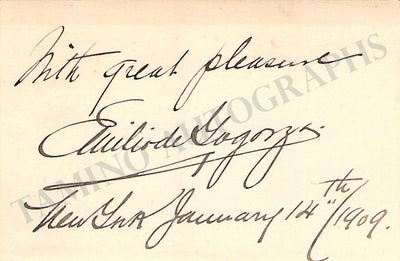 With great pleasure
Emilio de Gogorza.
New York January 14th/1909.
TAMINO AUTOGRAPHS